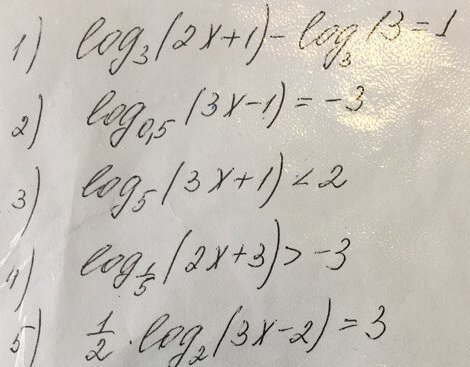 1) log₃(2x+1) - log₃13 = 1
2) log₀,₅(3x-1) = -3
3) log₅(3x+1) < 2
4) log_{1/5}(2x+3) > -3
5) 1/2 · log₂(3x-2) = 3